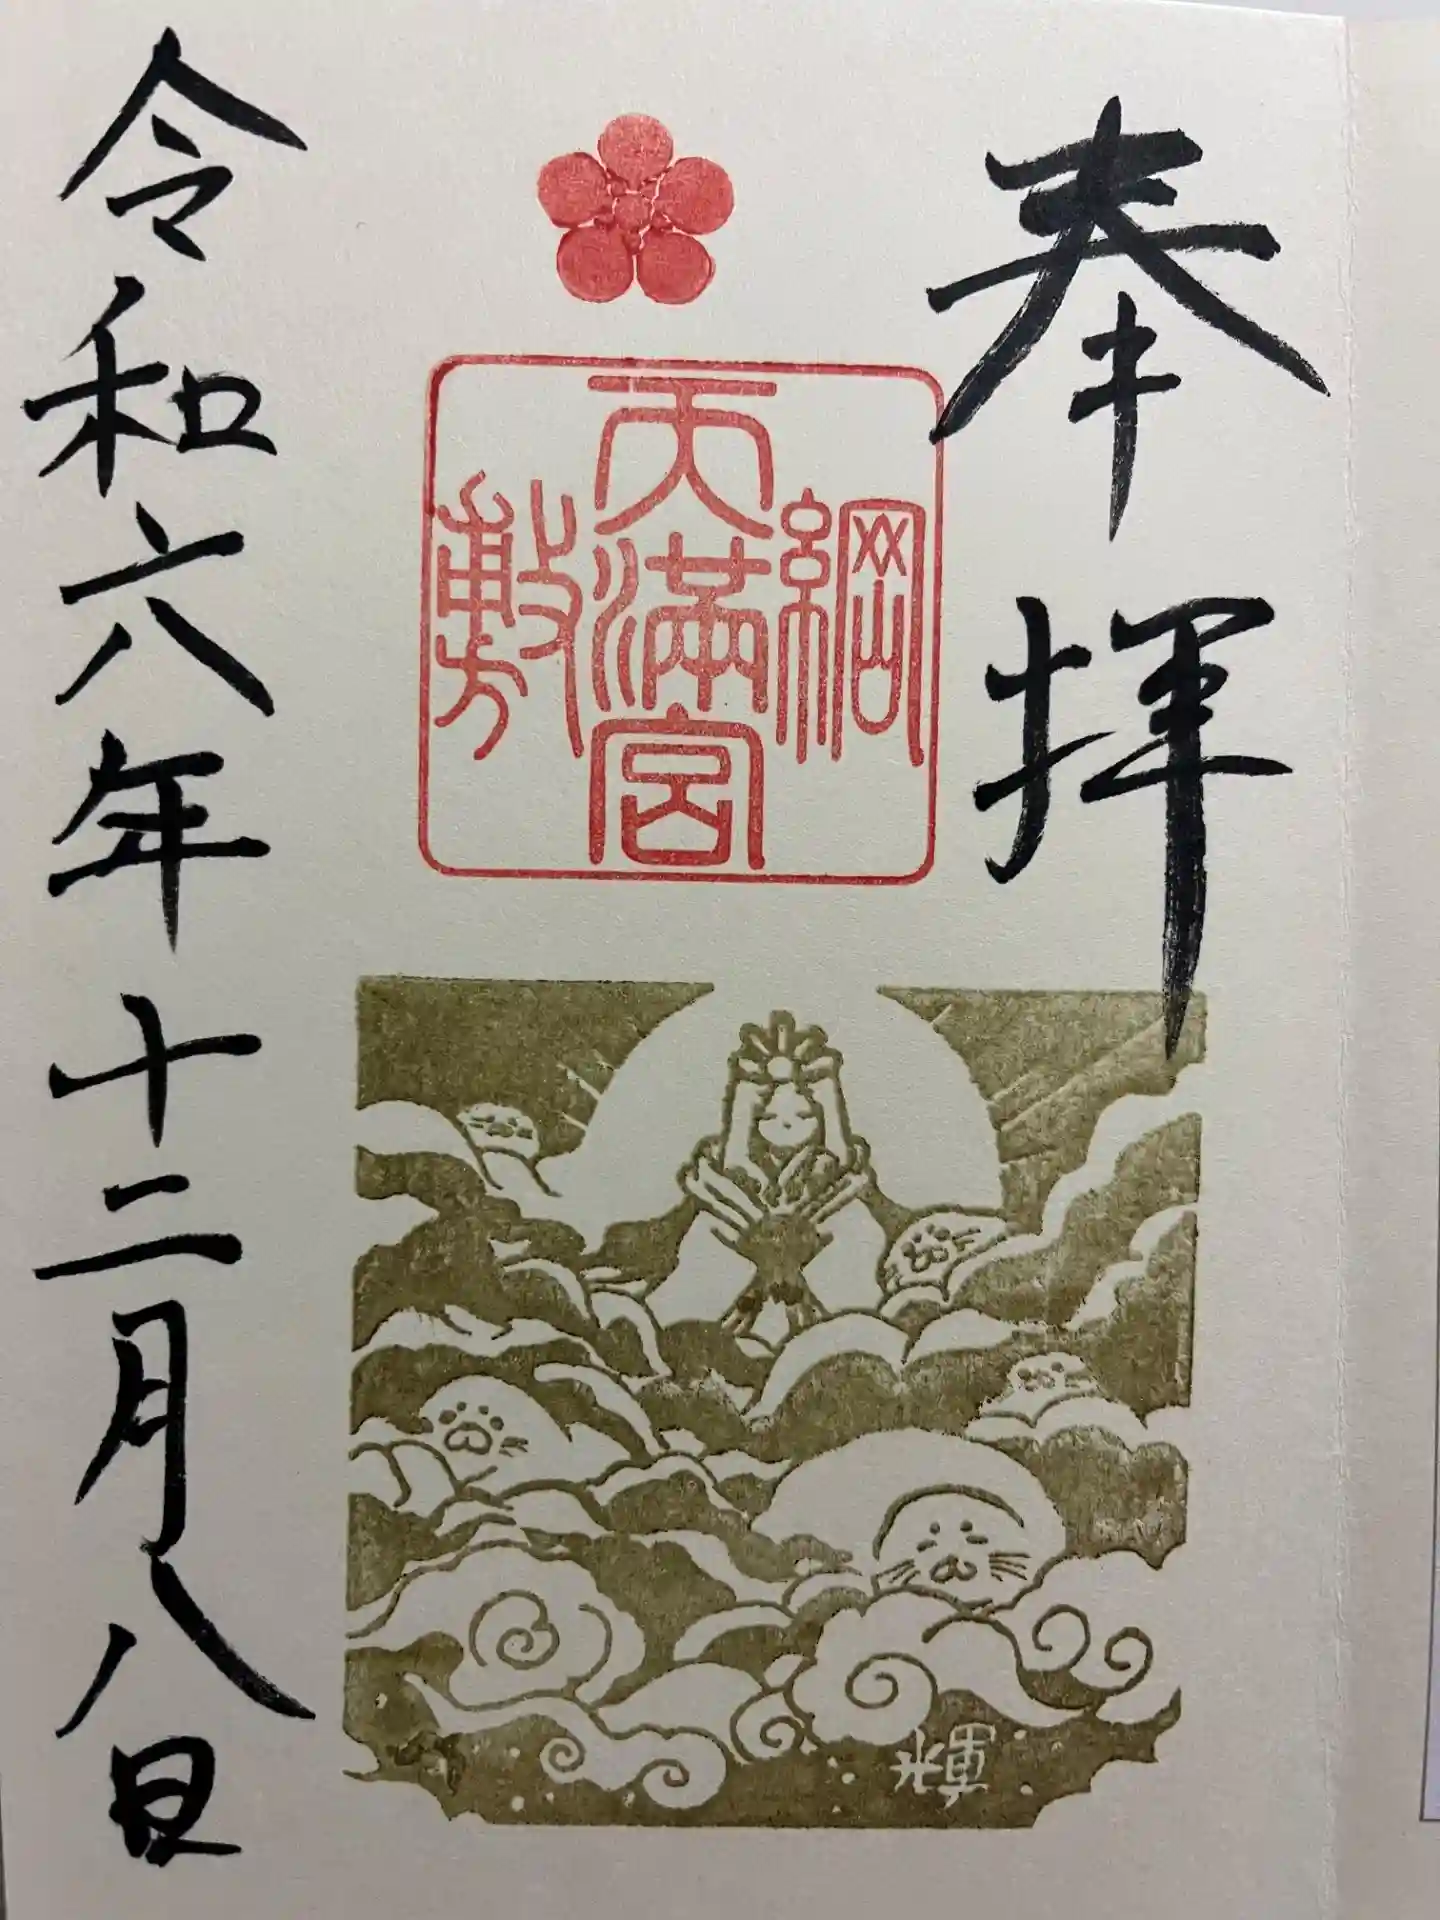 奉拝
綱敷天満宮
輝
令和六年十二月八日